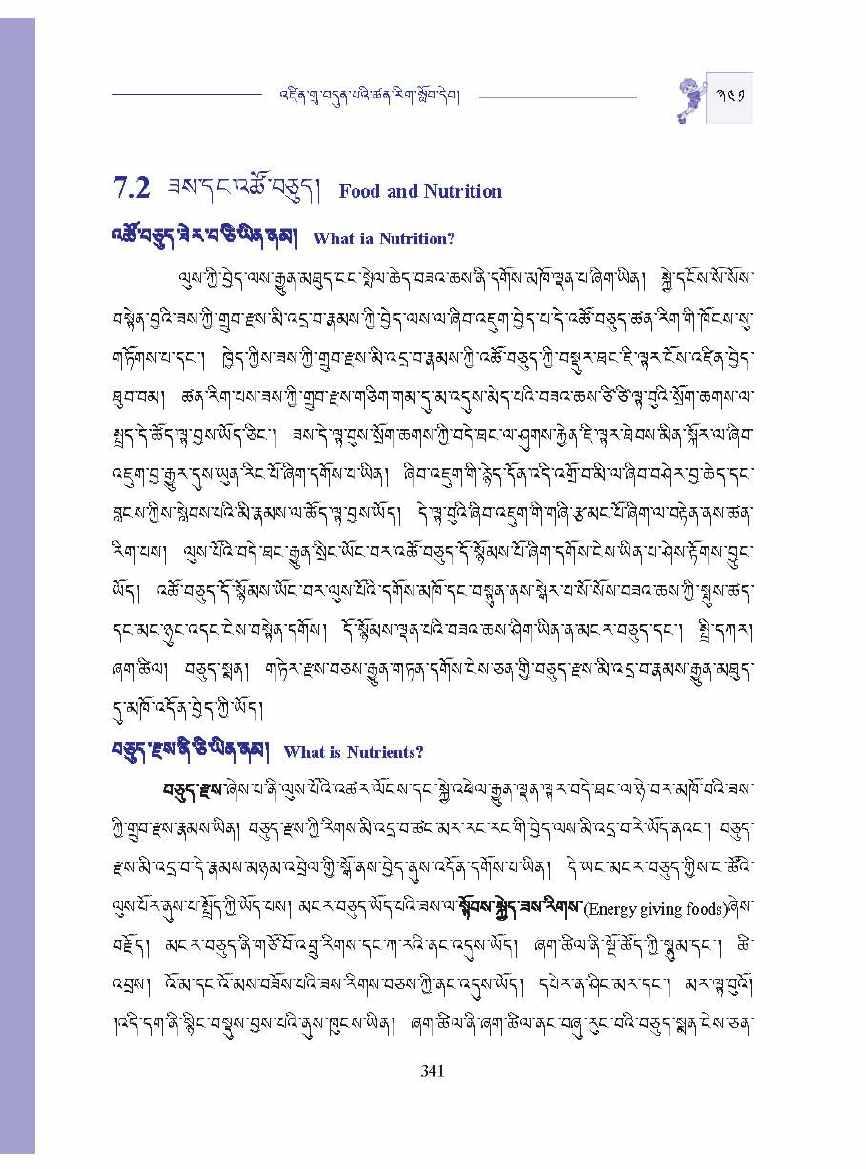 འཛིན་གྲྭ་བདུན་པའི་ཚན་རིག་སློབ་དེབ།
༣༤༡
7.2 ཟས་དང་འཚོ་བཅུད། Food and Nutrition
འཚོ་བཅུད་ཟེར་བ་ཅི་ཡིན་ནམ། What ia Nutrition?
ལུས་ཀྱི་བྱེད་ལས་རྒྱུན་མཐུད་ངང་སྤེལ་ཆེད་བཟའ་ཆས་ནི་དགོས་མཁོ་ལྡན་པ་ཞིག་ཡིན། སྐྱེ་དངོས་སོ་སོས་
བསྟེན་བྱའི་ཟས་ཀྱི་གྲུབ་རྫས་མི་འདྲ་བ་རྣམས་ཀྱི་བྱེད་ལས་ལ་ཞིབ་འཇུག་བྱེད་པ་དེ་འཚོ་བཅུད་ཚན་རིག་གི་ཁོངས་སུ་
གཏོགས་པ་དང་། ཁྱེད་ཀྱིས་ཟས་ཀྱི་གྲུབ་རྫས་མི་འདྲ་བ་རྣམས་ཀྱི་འཚོ་བཅུད་ཀྱི་བསྡུར་ཐང་ཇི་ལྟར་ངོས་འཛིན་བྱེད་
ཐུབ་བམ། ཚན་རིག་པས་ཟས་ཀྱི་གྲུབ་རྫས་གཅིག་གམ་དུ་མ་འདུས་མེད་པའི་བཟའ་ཆས་ཙི་ཙི་ལྟ་བུའི་སྲོག་ཆགས་ལ་
སྤྲད་དེ་ཚོད་ལྟ་བྱས་ཡོད་ཅིང་། ཟས་དེ་ལྟ་བུས་སྲོག་ཆགས་ཀྱི་བདེ་ཐང་ལ་ཤུགས་རྐྱེན་ཇི་ལྟར་ཐེབས་མིན་སྐོར་ལ་ཞིབ་
འཇུག་བྱ་རྒྱུར་དུས་ཡུན་རིང་པོ་ཞིག་དགོས་པ་ཡིན། ཞིབ་འཇུག་གི་རྙེད་དོན་འདི་འགྲོ་བ་མི་ལ་ཞིབ་བཤེར་བྱ་ཆེད་དང་
བླངས་ཀྱིས་སླེབས་པའི་མི་རྣམས་ལ་ཚོད་ལྟ་བྱས་ཡོད། དེ་ལྟ་བུའི་ཞིབ་འཇུག་གི་གཞི་རྩ་མང་པོ་ཞིག་ལ་བརྟེན་ནས་ཚན་
རིག་པས། ལུས་པོའི་བདེ་ཐང་རྒྱུན་སྲིང་ཡོང་བར་འཚོ་བཅུད་དོ་སྙོམས་པོ་ཞིག་དགོས་ངེས་ཡིན་པ་ཤེས་རྟོགས་བྱུང་
ཡོད། འཚོ་བཅུད་དོ་སྙོམས་ཡོང་བར་ལུས་པོའི་དགོས་མཁོ་དང་བསྟུན་ནས་སྒེར་བ་སོ་སོས་བཟའ་ཆས་ཀྱི་སྤུས་ཚད་
དང་མང་ཉུང་འདང་ངེས་བསྟེན་དགོས། དོ་སྙོམས་ལྡན་པའི་བཟའ་ཆས་ཤིག་ཡིན་ན་མངར་བཅུད་དང་། སྤྲི་དཀར།
ཞག་ཚིལ། བཅུད་སྨན། གཏེར་རྫས་བཅས་རྒྱུན་གཏན་དགོས་ངེས་ཅན་གྱི་བཅུད་རྫས་མི་འདྲ་བ་རྣམས་རྒྱུན་མཐུད་
དུ་མཁོ་འདོན་བྱེད་ཀྱི་ཡོད།
བཅུད་རྫས་ནི་ཅི་ཡིན་ནམ། What is Nutrients?
བཅུད་རྫས་ཞེས་པ་ནི་ལུས་པོའི་འཚར་ལོངས་དང་སྐྱེ་འཕེལ་རྒྱུན་ལྡན་ལྟར་བདེ་ཐང་ལ་ཉེ་བར་མཁོ་བའི་ཟས་
ཀྱི་གྲུབ་རྫས་རྣམས་ཡིན། བཅུད་རྫས་ཀྱི་རིགས་མི་འདྲ་བ་ཚང་མར་རང་རང་གི་བྱེད་ལས་མི་འདྲ་བ་རེ་ཡོད་ནའང་། བཅུད་
རྫས་མི་འདྲ་བ་དེ་རྣམས་མཉམ་འབྲེལ་གྱི་སྒོ་ནས་བྱེད་ནུས་འདོན་དགོས་པ་ཡིན། དེ་ཡང་མངར་བཅུད་ཀྱིས་ང་ཚོའི་
ལུས་པོར་ནུས་པ་སྤྲོད་ཀྱི་ཡོད་པས། མངར་བཅུད་ཡོད་པའི་ཟས་ལ་སྟོབས་སྐྱེད་ཟས་རིགས་(Energy giving foods)ཞེས་
བརྗོད། མངར་བཅུད་ནི་གཙོ་བོ་འབྲུ་རིགས་དང་ཀ་རའི་ནང་འདུས་ཡོད། ཞག་ཚིལ་ནི་སྔོ་ཚོད་ཀྱི་སྣུམ་དང་། ཚི་
འབྲས། འོ་མ་དང་འོ་མས་བཟོས་པའི་ཟས་རིགས་བཅས་ཀྱི་ནང་འདུས་ཡོད། དཔེར་ན་ཤིང་མར་དང་། མར་ལྟ་བུའོ།
།འདི་དག་ནི་སྙིང་བསྡུས་བྱས་པའི་ནུས་ཁུངས་ཡིན། ཞག་ཚིལ་ནི་ཞག་ཚིལ་ནང་བཞུ་རུང་བའི་བཅུད་སྨན་ངེས་ཅན་
341